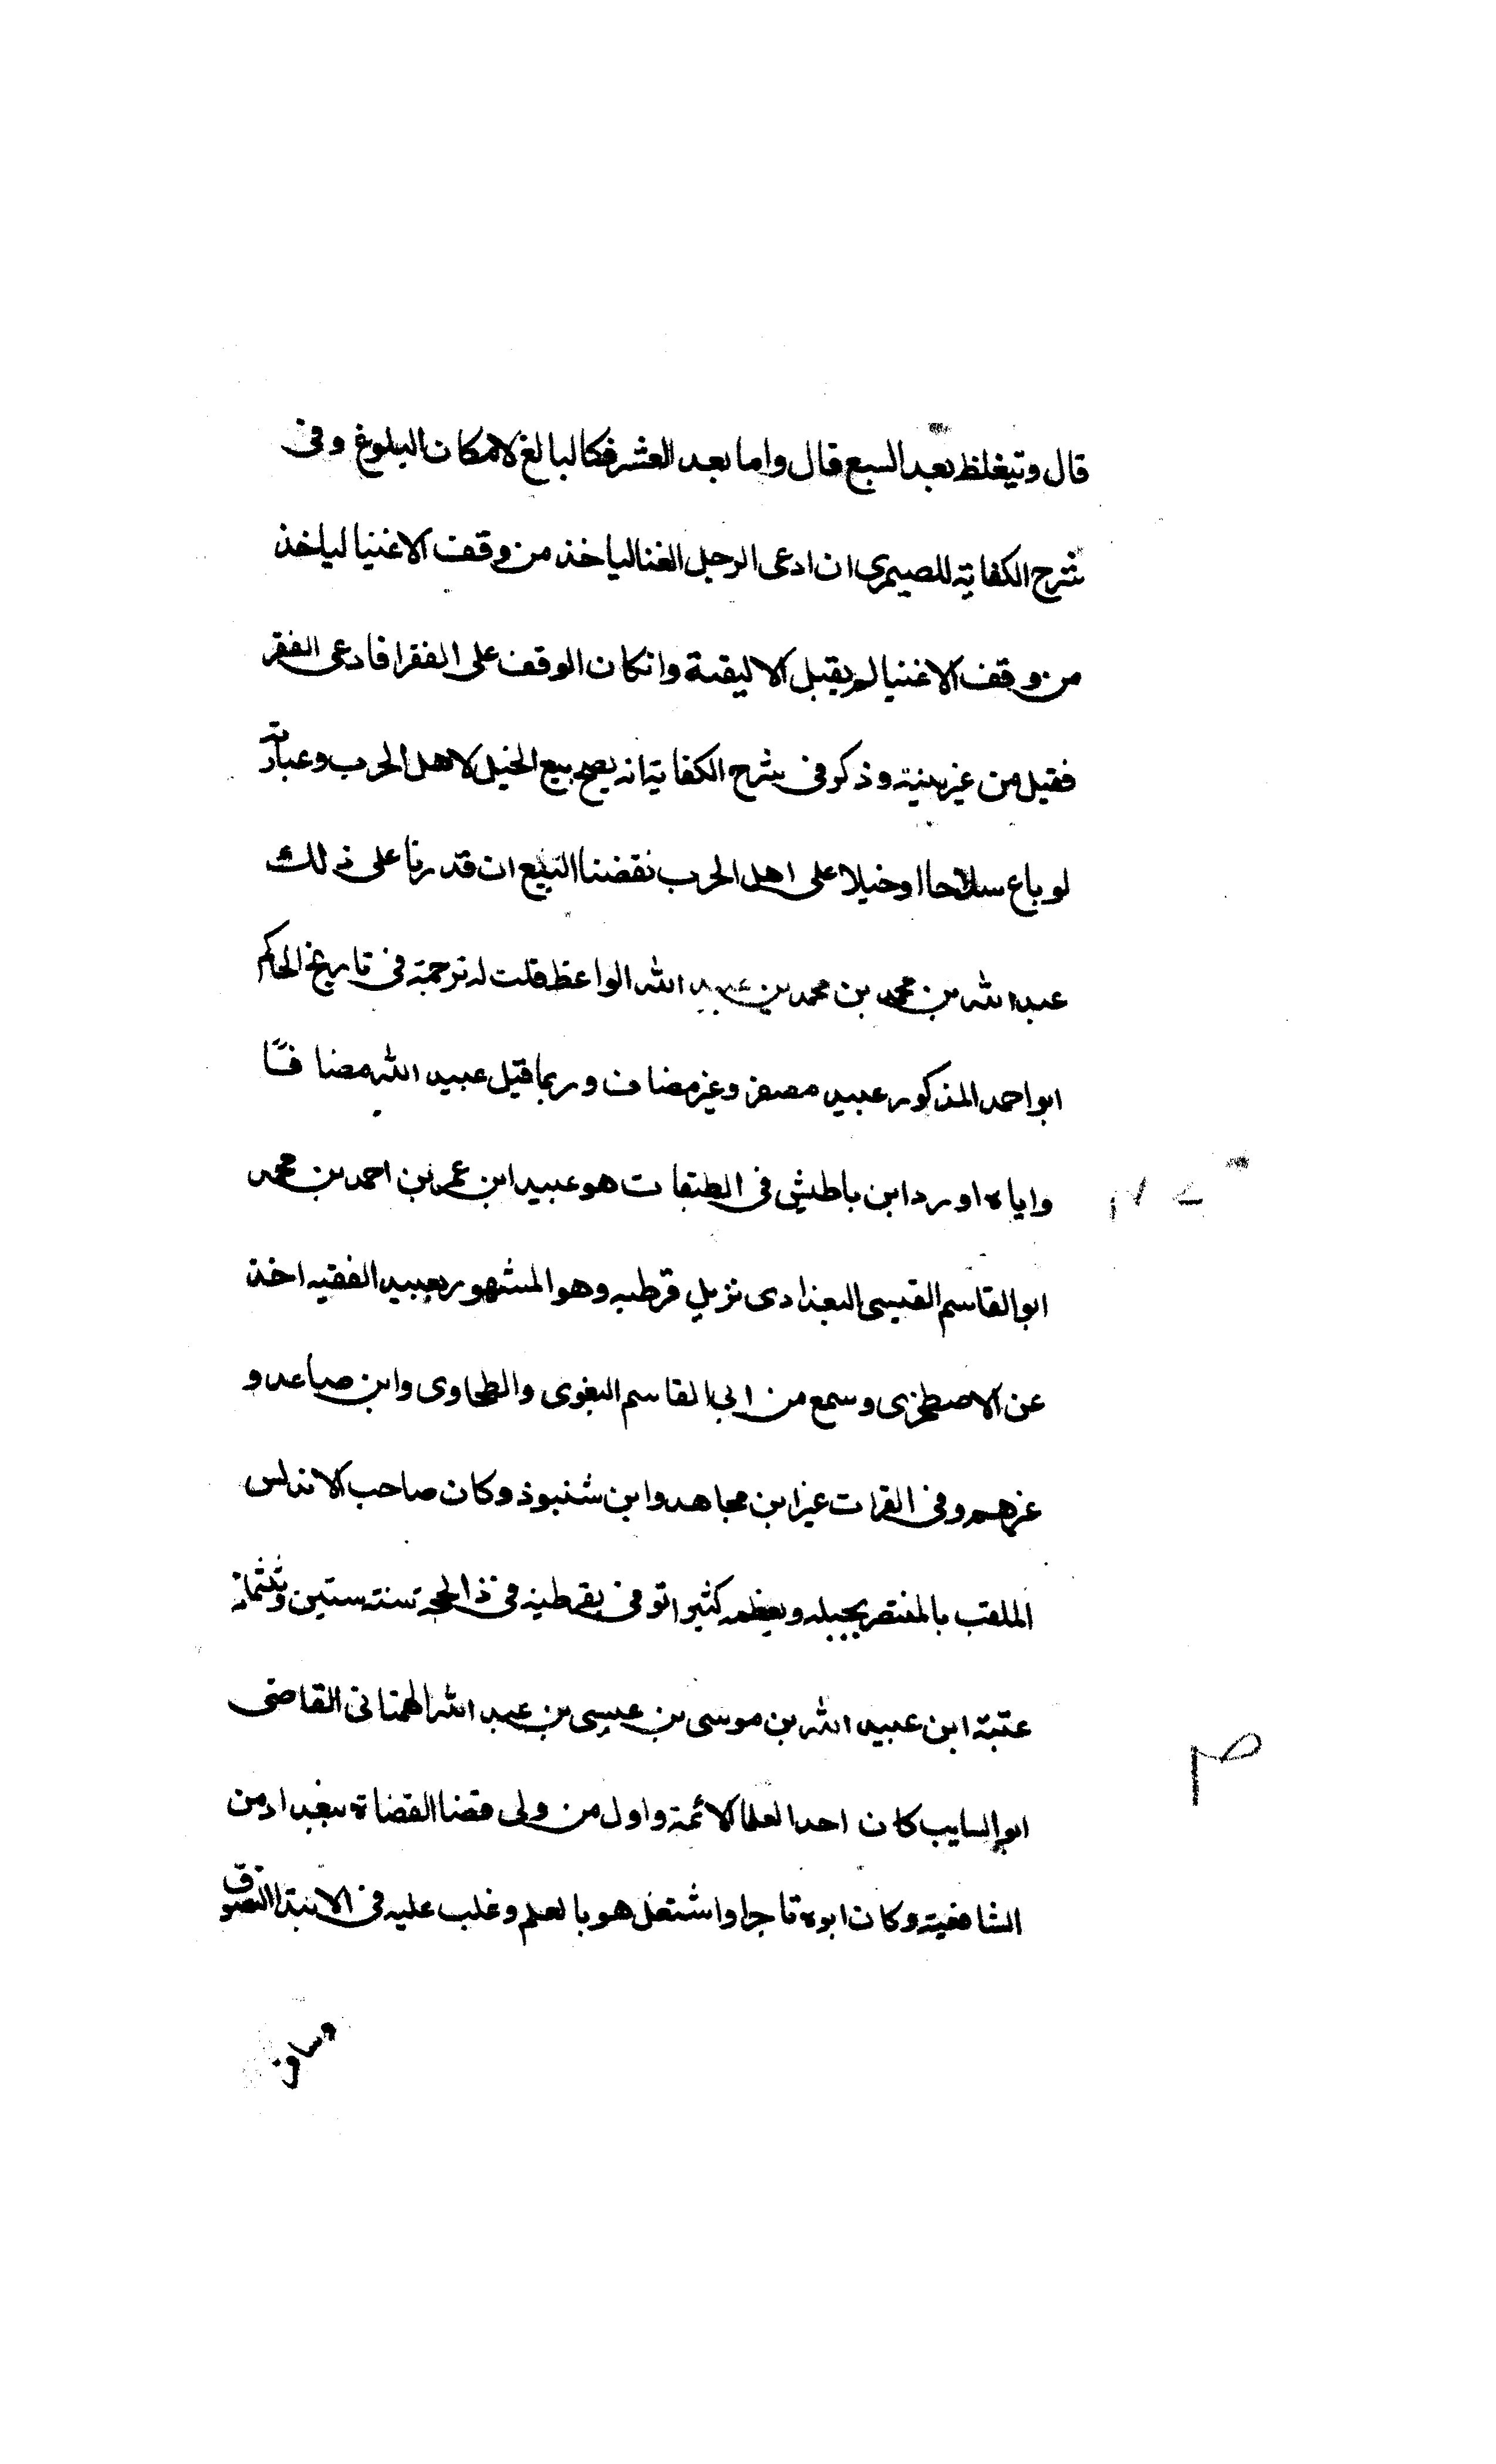 قال وتيغلظ بعد السبع قال واما بعد العشر فكالبالغ لامكان البلوغ وفى
شرح الكفاية للصيمرى ان ادعى الرجل الغنا لياخذ من وقف الاغنيا لياخذ
من وقف الاغنيا لم يقبل الا ليقنة وانكان الوقف على الفقرا فادعى الفقر
فقيل من غير بينية وذكر فى شرح الكفاية انه يصح بيع الخيل لاهل الحرب وعبارته
لو باع سلاحا اوخيلا على اهل الحرب نقضنا البيع ان قدرنا على ذلك
عبد الله بن محمد بن محمد بن عبيد الله الواعظ قلت له ترجمة فى تاريخ الحاكم
ابو احمد المذكور عبيد مصغر وغير مضاف وربما قيل عبيد الله مضافا
واياه اورد ابن باطيش فى الطبقات هو عبيد ابن عمر بن احمد بن محمد
ابو القاسم القيسى البغدادى نزيل قرطبه وهو المشهور بعبيد الفقيه اخذ
عن الاصطخرى وسمع من ابى القاسم البغوى والطحاوى وابن صاعد و
غيرهم وفى القرات عن ابن مجاهد وابن شنبوذ وكان صاحب الاندلس
الملقب بالمنتصر يجبله ويعظمه كثيرا توفى بقرطبه فى ذالحجة سنة ستين وثلثماية
عتبة ابن عبيد الله بن موسى بن عيسى بن عبد الله الهمذانى القاضى
ابو السايب كان احد العلما الائمة واول من ولى قضا القضاة ببغداد من
الشافعية وكان ابوه تاجرا واشتغل هو بالعلم وغلب عليه فى الابتدا التصوف
وسافر